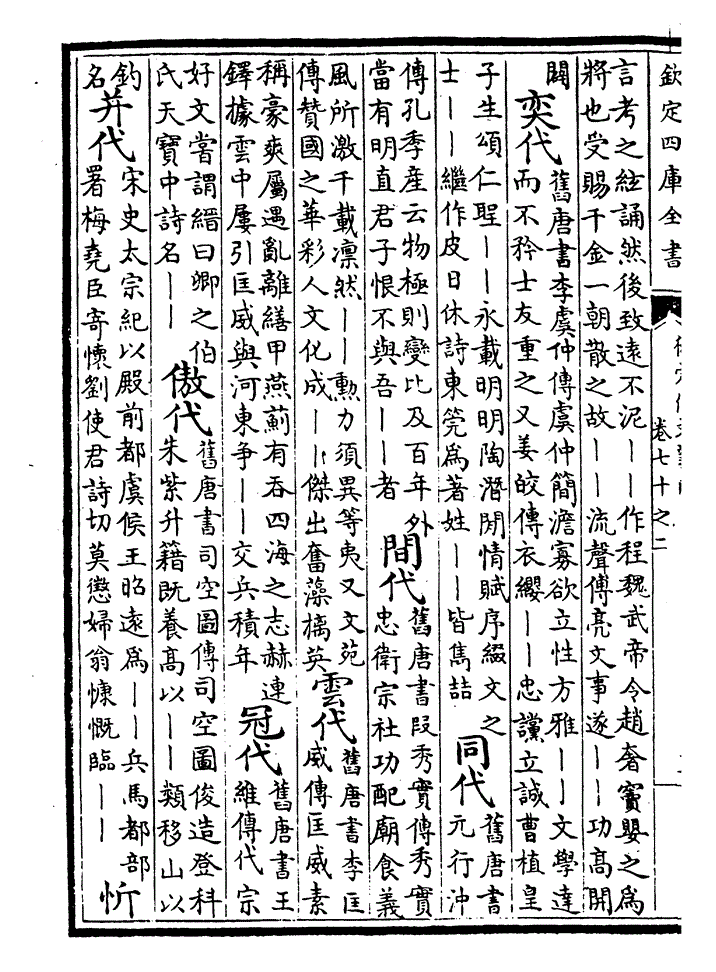 欽定四庫全書
卷七十之二
言考之絃誦然後致遠不泥――作程魏武帝令趙奢竇嬰之為
將也受賜千金一朝散之故――流聲傳亮文事遂――功高開
闢
奕代
舊唐書李虞仲傳虞仲簡澹寡欲立性方雅――文學達
而不矜士友重之又姜皎傳衣纓――忠讜立誠曹植皇
子生頌仁聖――永載明明陶潛閑情賦序綴文之
士――繼作皮日休詩東筦為著姓――皆雋喆
同代
舊唐書
元行沖
傳孔季產云物極則變比及百年外
當有明直君子恨不與吾――者
間代
舊唐書段秀實傳秀實
忠衛宗社功配廟食義
風所激千載凛然――勲力須異等夷又文苑
傳贊國之華彩人文化成――傑出奮藻摛英
雲代
舊唐書李匡
威傳匡威素
稱豪爽屬遇亂離繕甲燕薊有吞四海之志赫連
鐸據雲中屢引匡威與河東爭――交兵積年
冠代
舊唐書王
維傳代宗
好文嘗謂縉曰卿之伯
氏天寶中詩名――
傲代
舊唐書司空圖傳司空圖俊造登科
朱紫升籍既養高以――類移山以
釣
名
并代
宋史太宗紀以殿前都虞候王昭遠為――兵馬都部
署梅堯臣寄懷劉使君詩切莫懲婦翁慷慨臨――
忻